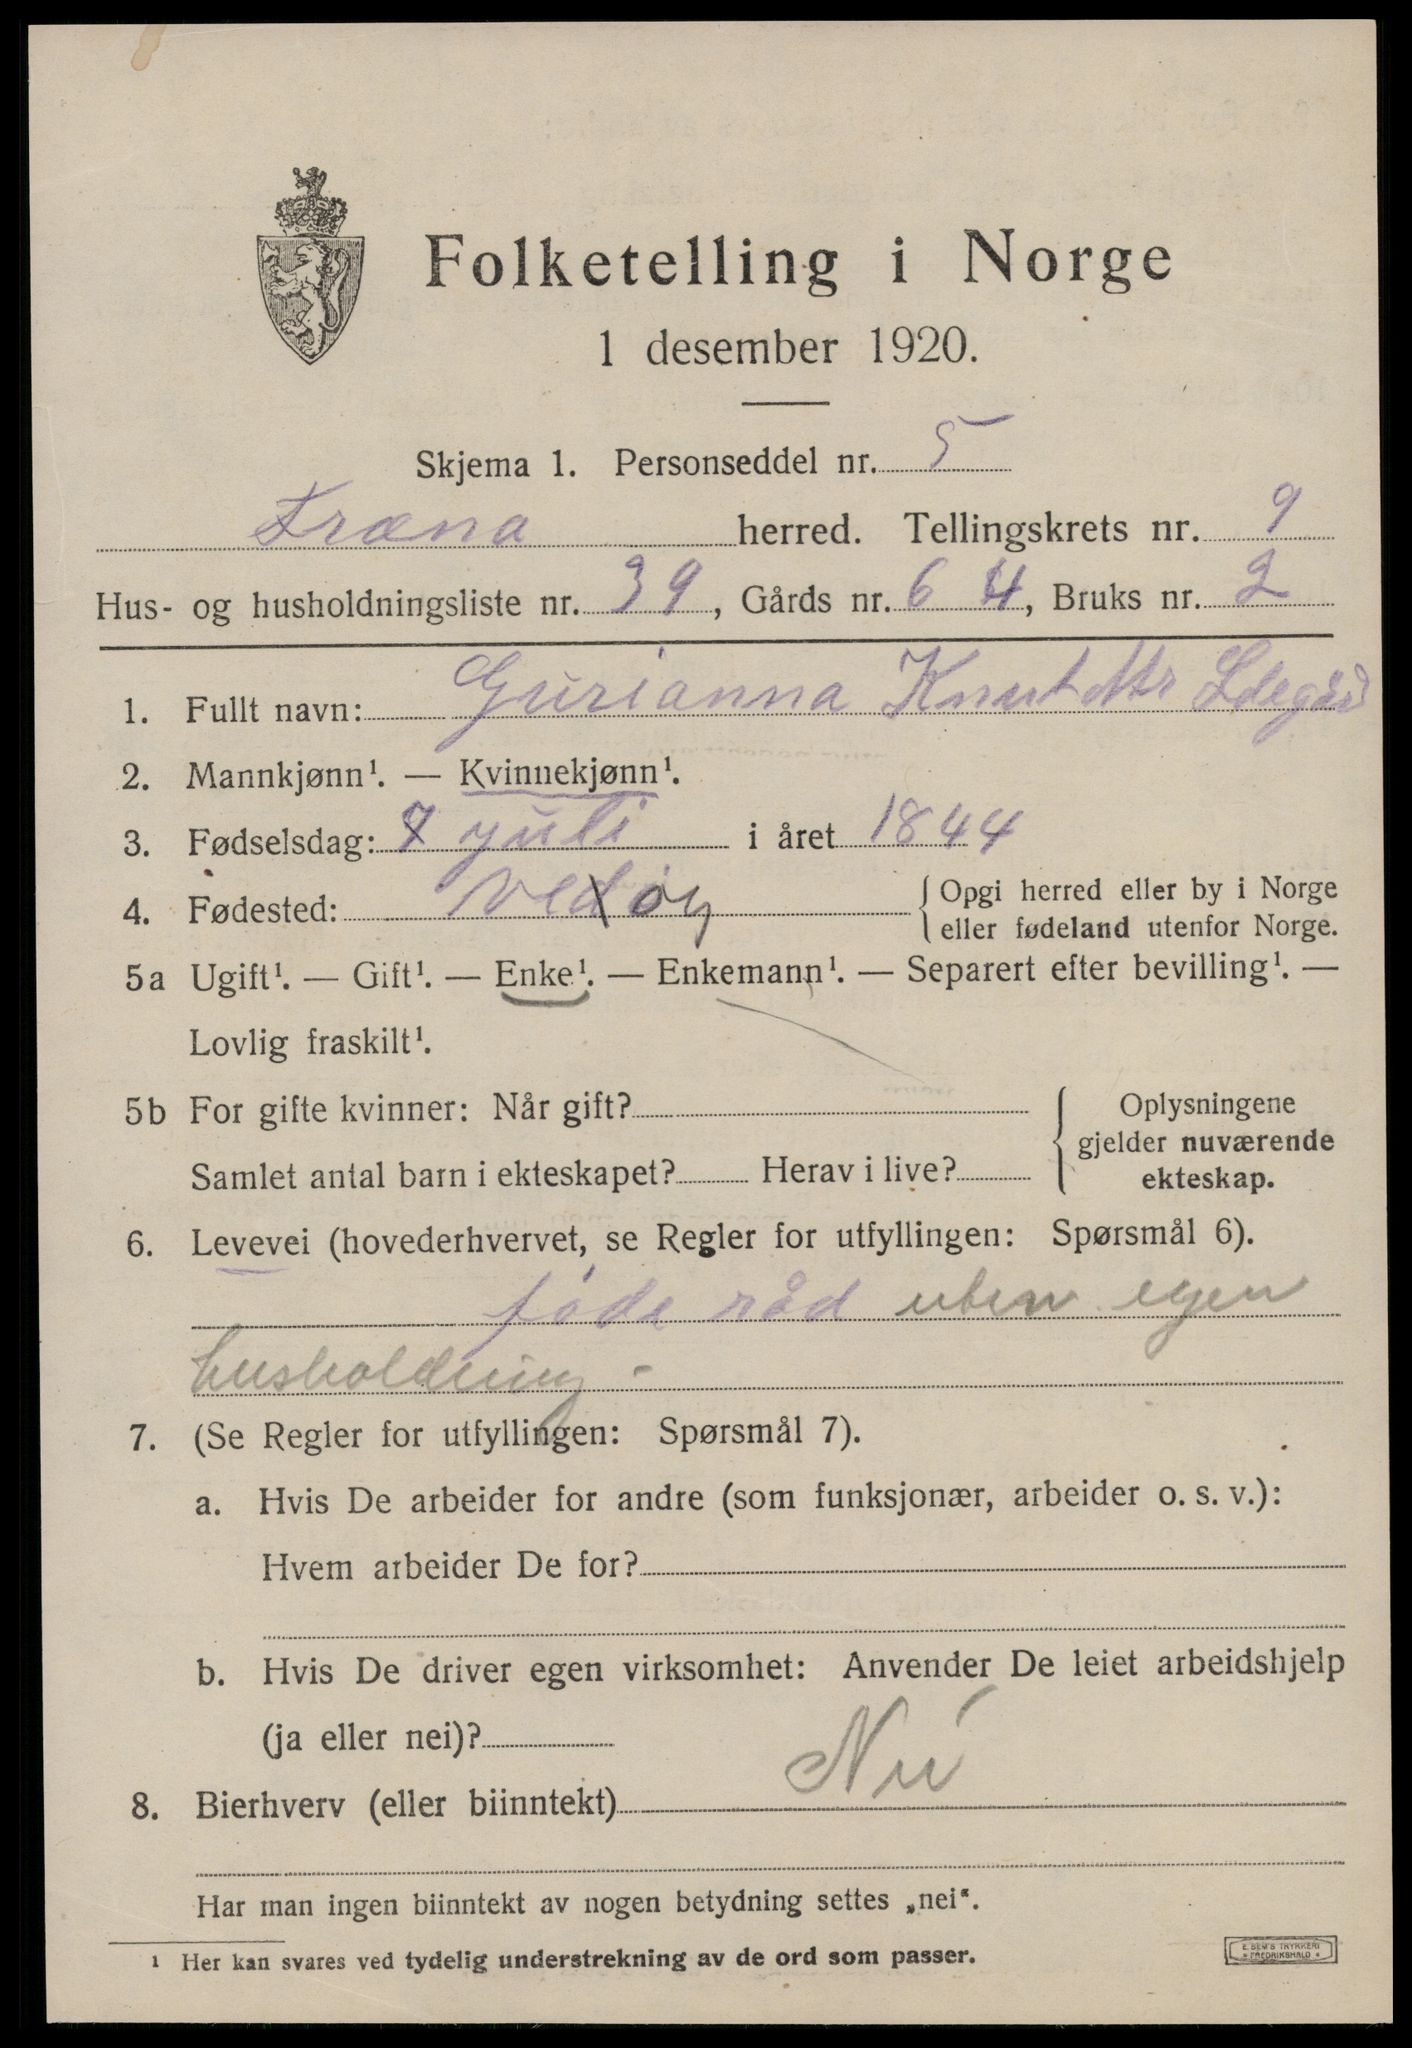 Folketelling i Norge
1 desember 1920.
Skjema 1. Personseddel nr. 5
Fræna herred. Tellingskrets nr. 9
Hus- og husholdningsliste nr. 39, Gårds nr. 64, Bruks nr. 2
1. Fullt navn: Gurianna Knutdtr
2. Mannkjønn¹. — Kvinnekjønn¹.
3. Fødselsdag: 7 yuli i året 1844
4. Fødested: Vedøy { Opgi herred eller by i Norge
eller fødeland utenfor Norge.
5a Ugift¹. — Gift¹. — Enke¹. — Enkemann¹. — Separert efter bevilling¹. —
Lovlig fraskilt¹.
5b For gifte kvinner: Når gift? { Oplysningene
gjelder nuværende
Samlet antal barn i ekteskapet? Herav i live? ekteskap.
6. Levevei (hovederhvervet, se Regler for utfyllingen: Spørsmål 6).
føde råd uten egen
husholdning -
7. (Se Regler for utfyllingen: Spørsmål 7).
a. Hvis De arbeider for andre (som funksjonær, arbeider o. s. v.):
Hvem arbeider De for?
b. Hvis De driver egen virksomhet: Anvender De leiet arbeidshjelp
(ja eller nei)?
8. Bierhverv (eller biinntekt) Nei
Har man ingen biinntekt av nogen betydning settes „nei“.
¹ Her kan svares ved tydelig understrekning av de ord som passer.
E. SEM'S TRYKKERI
FREDRIKSHALD